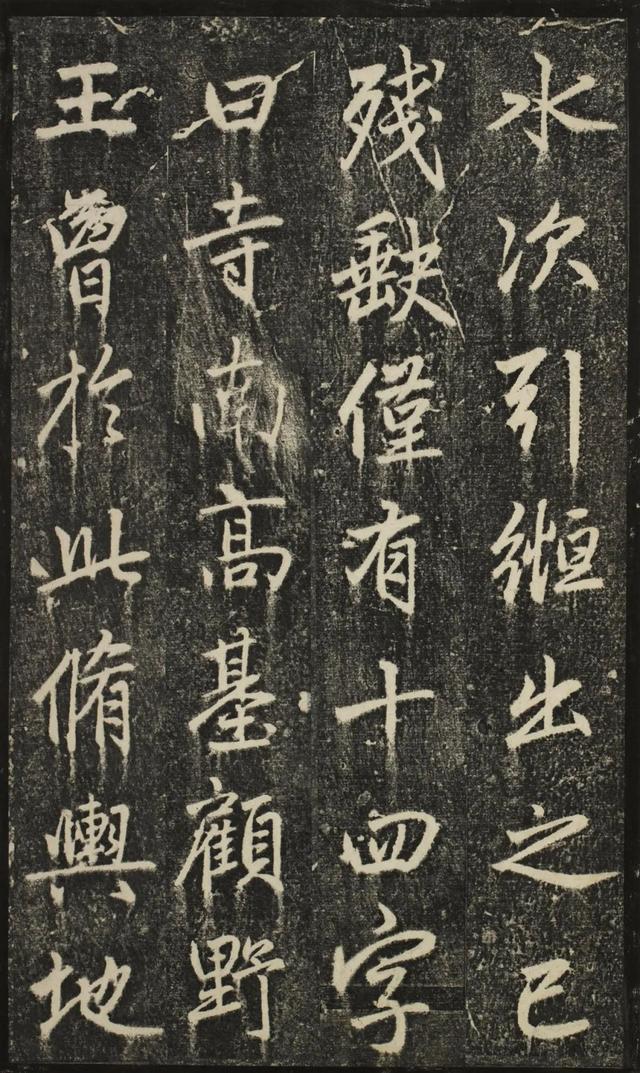 水次引縆出之已
殘缺僅有十四字
曰寺南高基顧野
王曾於此脩輿地